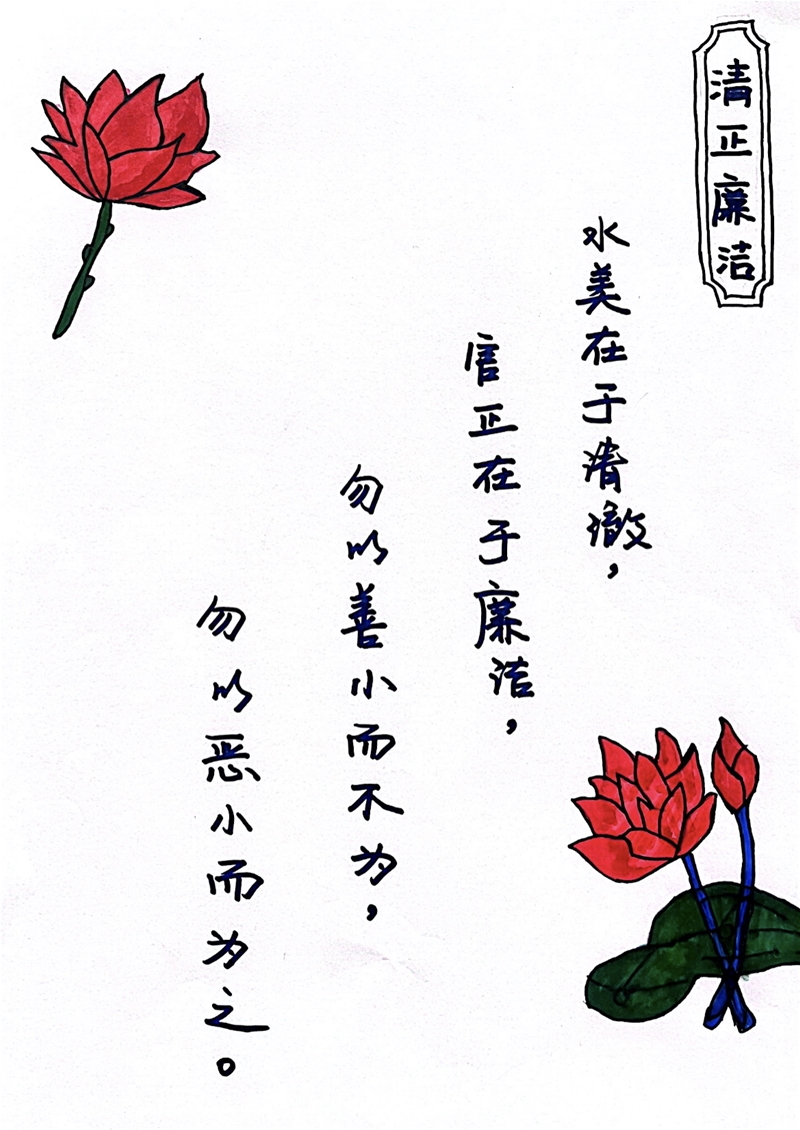 清正廉洁
水美在于清澈，
官正在于廉洁，
勿以善小而不为，
勿以恶小而为之。